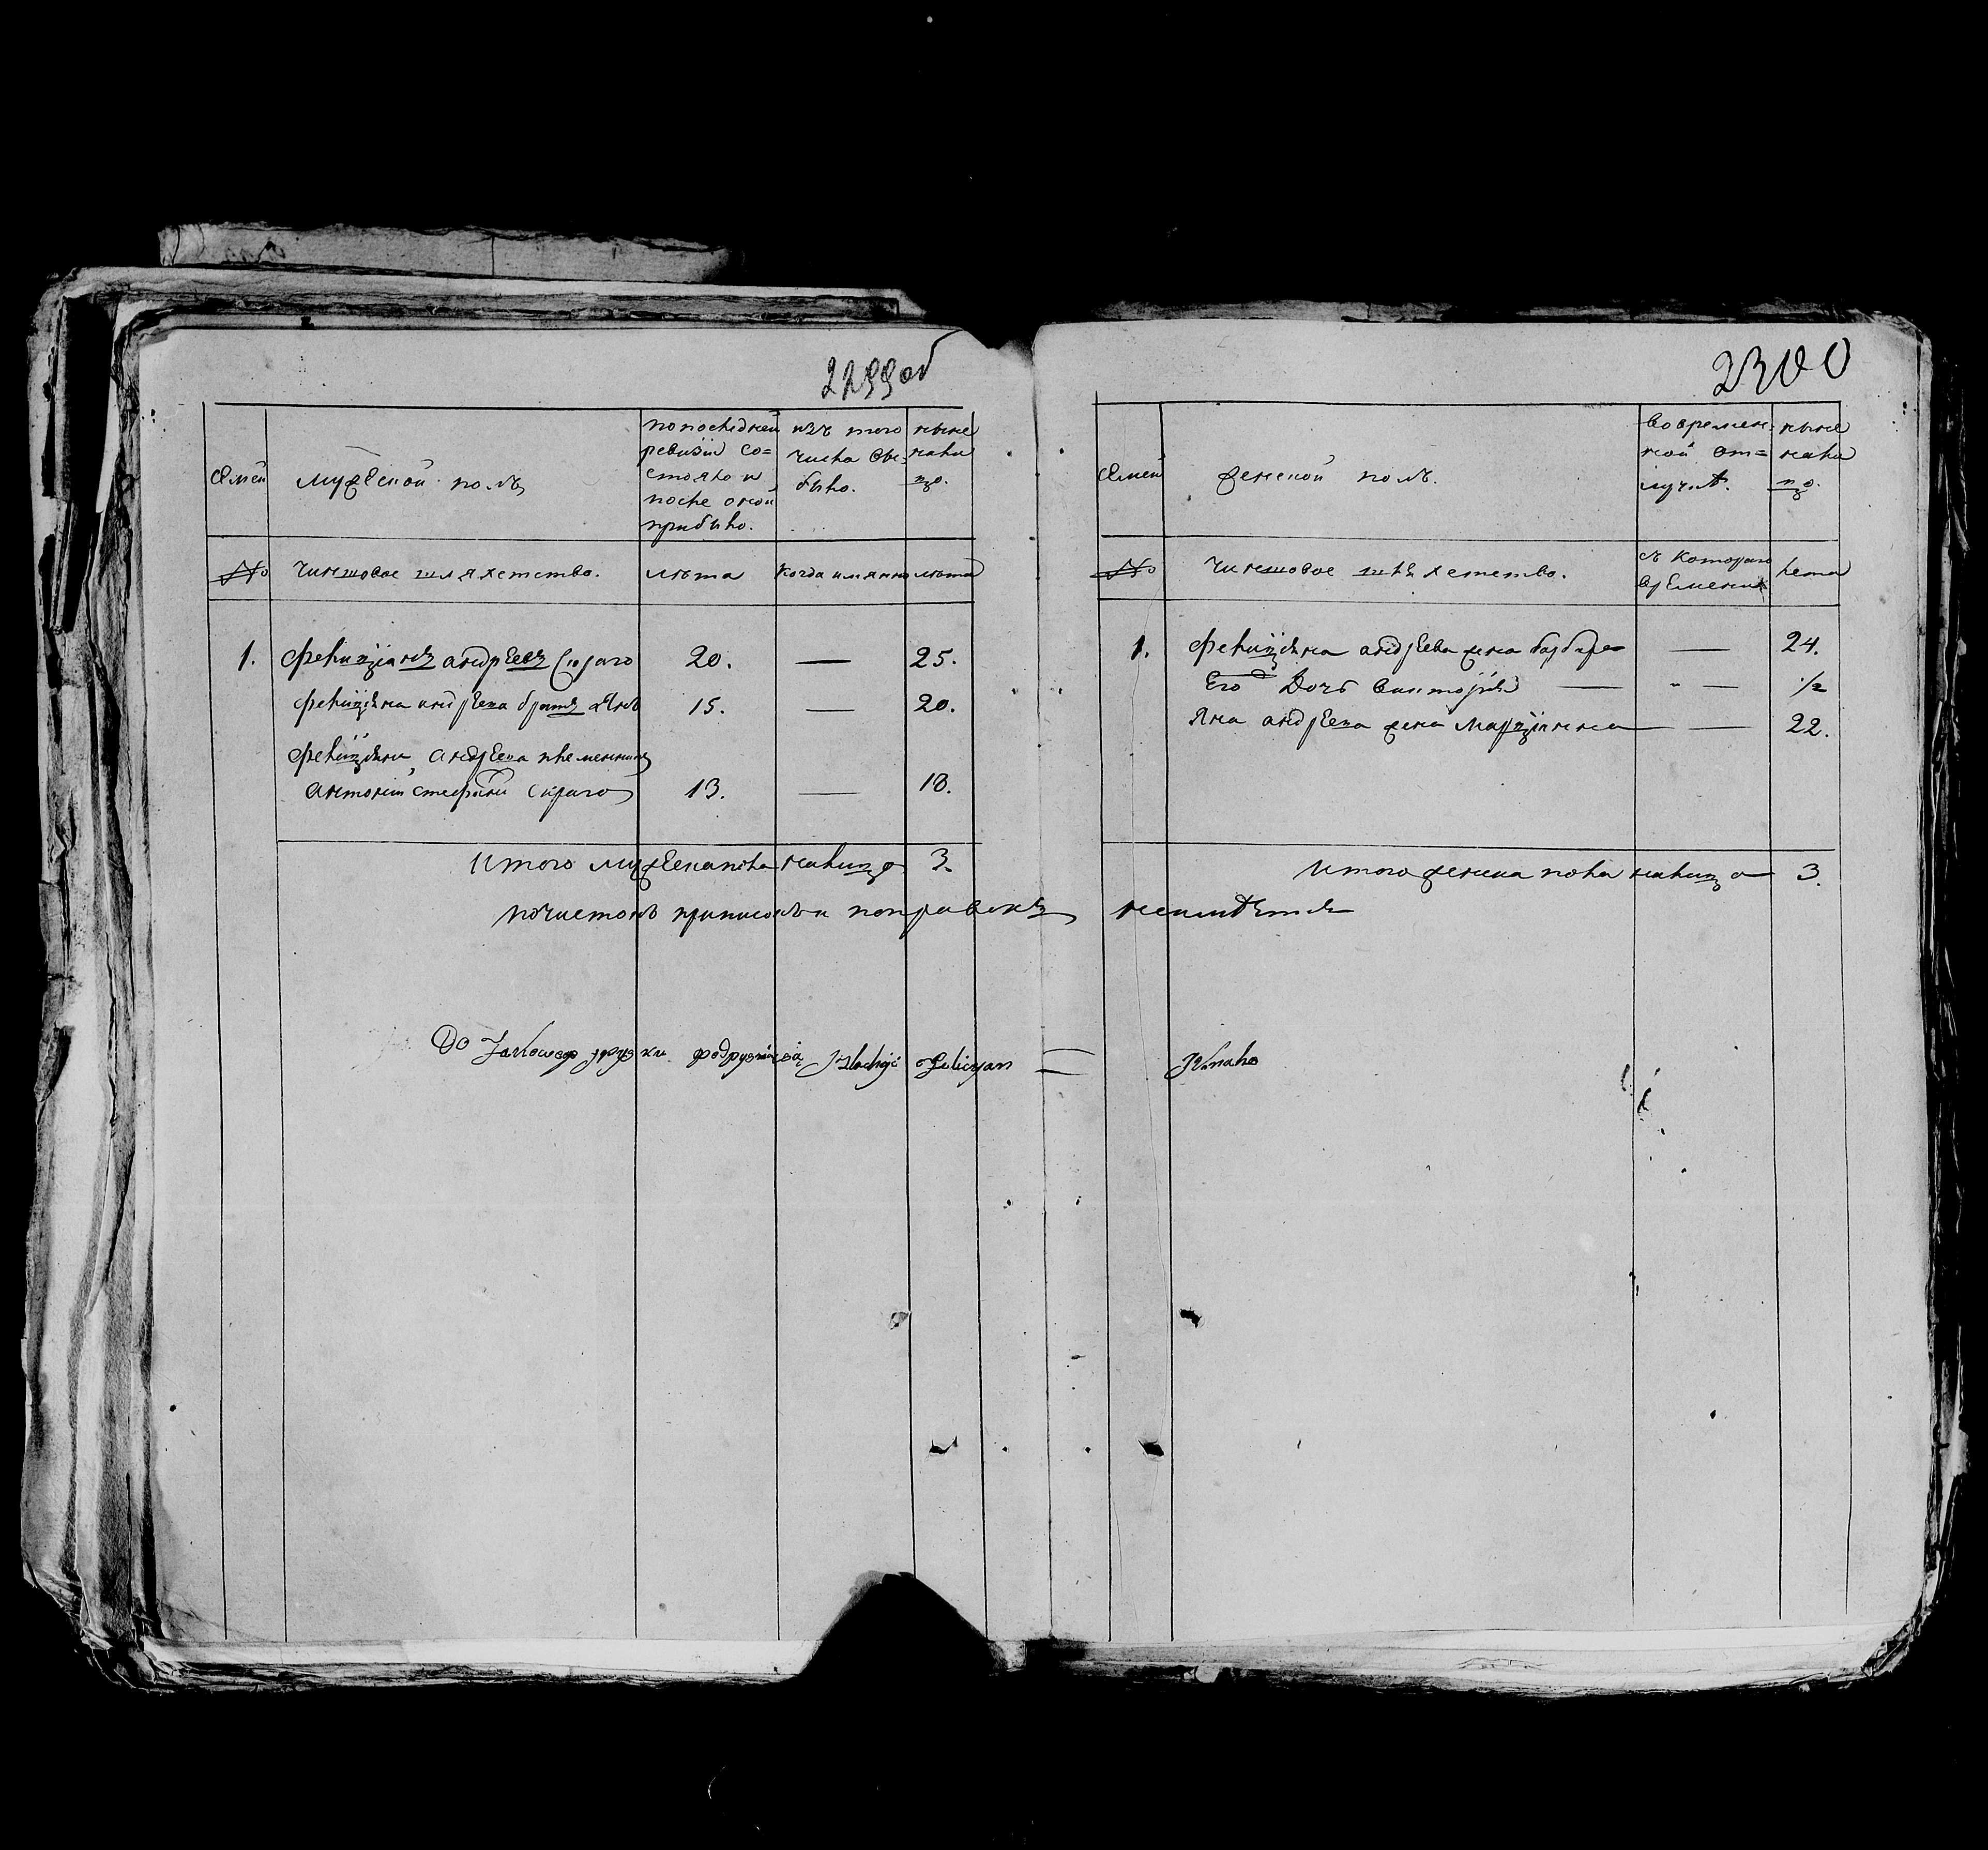 2299 об
Семьи
мужеской полъ
по последней
ревизіи со=
стояло и
после оной
прибыло.
изъ того
числа вы=
было.
ныне
нали
цо.
№
чиншовое шляхетство.
лѣта
когда имянно
лѣта
1. Фелиціянъ андреевъ 20. — 25.
Фелиціяна андреева братъ Янъ 15. — 20.
Фелиціяна андреева племенникъ
Антоній Стефана 13. — 18.
Итого мужеска пола налицо 3.
почистокъ приписокъ и поправокъ
До podpysuią Felicyan =
2300
Семьи
женской полъ.
во времен=
ной от=
лучкѣ.
ныне
нали
цо.
№
чиншовое шляхетство.
съ котораго
времени
лета
1. Фелиціяна андреева жена барбара — 24.
Его дочь викторія — " — 1/2
Яна андреева жена марціянна — — 22.
Итого женска пола налицо 3.
неимѣется